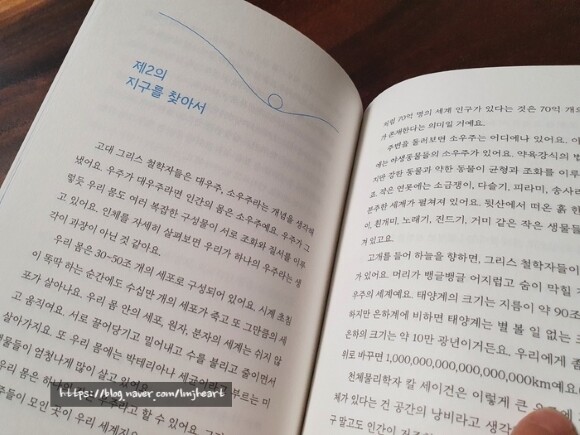 제2의
지구를 찾아서
고대 그리스 철학자들은 대우주, 소우주라는 개념을 생각해
냈어요. 우주가 대우주라면 인간의 몸은 소우주예요. 우주가 그
렇듯 우리 몸도 여러 복잡한 구성물이 서로 조화와 질서를 이루
고 있어요. 인체를 자세히 살펴보면 우리가 하나의 우주라는 생
각이 과장이 아닌 것 같아요.
우리 몸은 30~50조 개의 세포로 구성되어 있어요. 시계 초침
이 똑딱 하는 순간에도 수십만 개의 세포가 죽고 또 그만큼의 세
포가 살아나요. 우리 몸 안의 세포, 원자, 분자의 세계는 쉬지 않
고 움직여요. 서로 끌어당기고 밀어내고 수를 불리고 줄이면서
살아가지요. 또 우리 몸에는 박테리아나 세균이라고 부르는 미
생물들이 엄청나게 많이 살고 있어요.
우리 몸은 하나의 우주라고 할 수 있어요. 그
주들이 모인 곳이 우리 세계지요
https://blog.naver.com/lmjheart
처럼 70억 명의 세계 인구가 있다는 것은 70억 개의
가 존재한다는 의미일 거예요.
주변을 둘러보면 소우주는 어디에나 있어요.
에는 야생동물들의 소우주가 있어요. 약육강식의
지만 강한 동물과 약한 동물이 균형과 조화를 이루
죠. 작은 연못에는 소금쟁이, 다슬기, 피라미, 송사리
분주한 세계가 펼쳐져 있어요. 뒷산에서 떠온 흙 한
미, 흰개미, 노래기, 진드기, 거미 같은 작은 생물들
겨 있고요.
고개를 들어 하늘을 향하면, 그리스 철학자들이
가 있어요. 머리가 뱅글뱅글 어지럽고 숨이 막힐
우주의 세계예요. 태양계의 크기는 지름이 약 90조
하지만 은하계에 비하면 태양계는 별 볼 일 없는
은하의 크기는 약 10만 광년이거든요. 우리에게
위로 바꾸면 1,000,000,000,000,000,000km예요
천체물리학자 칼 세이건은 이렇게 큰 우주에
체가 있다는 건 공간의 낭비라고 생각
구 말고도 인간이 거주